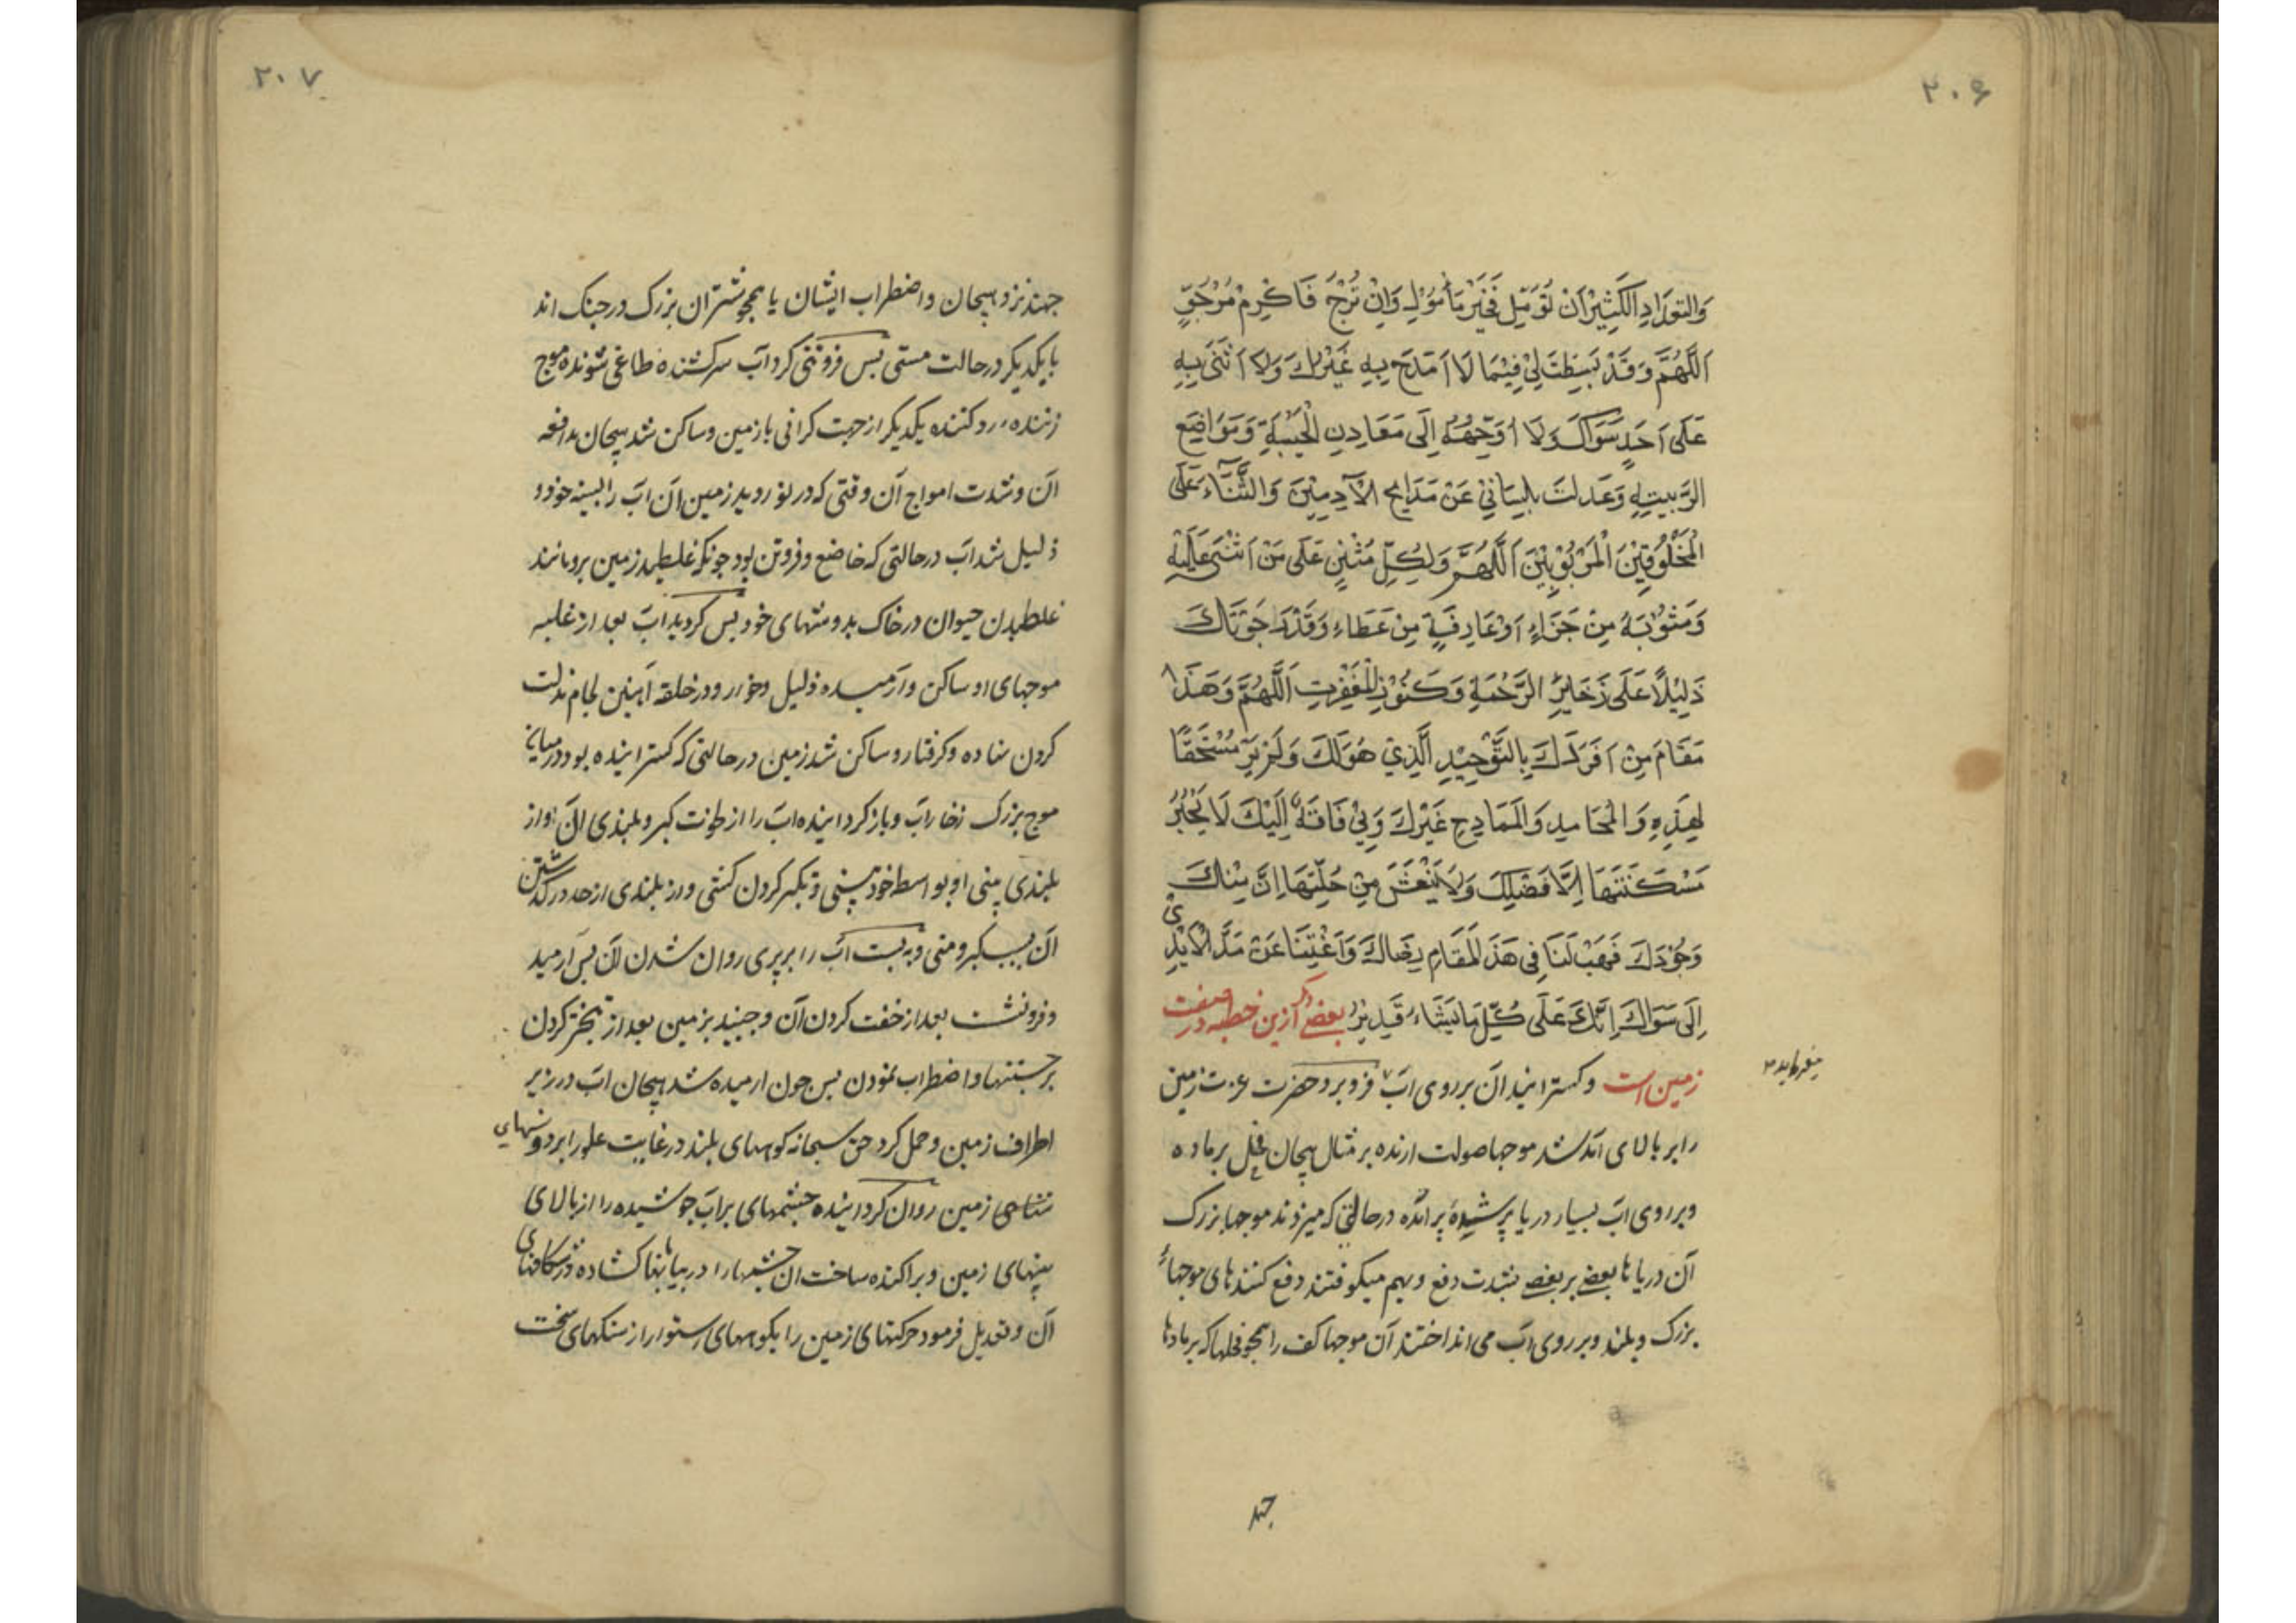 ۲۰۶
وَالتعْدَادِ الْكَثِيْرِ اِنْ تُؤَمَّل فَخَيْر مَأْمُوْلٍ وَاِنْ تُرْجَ فَاَكْرِمْ مَرْجُوٍّ
اَللّٰهُمَّ وَقَدْ بَسَطتَ لِیْ فِيْمَا لَا اَمْدَح بِهِ غَيْركَ وَلَا اُثْنی بِهِ
عَلٰی اَحَدٍ سَوَاكَ وَلَا اُوَجِّهُهُ اِلَی مَعَادِنِ الْخَيْبَةِ وَمَوَاضِع
الرَّيبةِ وَعَدلتَ بِلِسَانِیْ عَنْ مَدَايح الْآدَمِيّيْنَ وَالثَّنَاءِ عَلَی
الْمَخْلُوْقِيْنَ الْمَرْبُوْبِيْنَ اَللّٰهُمَّ وَلِكُلِّ مُثْنٍ عَلَی مَنْ اَثْنَی عَلَيْهِ
وَمَثُوْبَهُ مِنْ جَزَاءٍ اَوْعَارِفَةٍ مِنْ عَطَاءٍ وَقَدْ رَجَوْتَكَ
دَلِيْلًا عَلَی ذَخَايِرِ الرَّحْمَةِ وَكَنُوْزِ الْمَغْفِرت اَللّٰهُمَّ وَهَذَا
مَقَامَ مِنْ اَفْرَدَكَ بِالتَّوْحِيْدِ الَّذِيْ هُوَ لَكَ وَلَمْ يَرَ مُسْتَحَقًّا
لِهَذِهِ وَالْمَحَامِدِ وَالْمَمَادِحِ غَيْرِكَ وَبِیْ فَاقَةٌ اِلَيْكَ لَا يَجْبُرُ
مَسْكَنَتَهَا اِلَّا فَضْلكَ وَلَا يَنْعَشُ مِنْ خَلَّتِهَا اِلَّا مِنكَ
وَجُوْدَكَ فَهَبْ لَنَا فِی هَذَ الْمَقَامِ رِضَاكَ وَاَغْنِنَا عَنْ مَدِّ الْاَيْدِیْ
اِلَی سَوَاكَ اِنَّكَ عَلَی كُلِّ مَا تَشَاءُ قَدِيْرُ بعضی دگر ازین خطبه در صفت
زمین است و گسترانیدن آن بر روی آب فرو برد حضرت عزت زمین
میفرماید
را بر بالای موجها صولت ارنده بر مثال هیجان فحل بر ماده
و بر روی آب بسیار دریا پر درحالتی که میزدند موجها بزرک
آن دریاها بعضی بر بعضی بشدت دفع و بهم میکوفتند دفع کنندهای موجهاء
بزرک و بلند و بر روی آب می انداختند آن موجها کف را همچو فحلها که بر مادها
جهند
۲۰۷
جهند نزد هیجان و اضطراب ایشان یا همچو شتران بزرک در جنک اند
با یکدیکر در حالت مستی پس فروتنی کرد آب سرکشنده طاغی شونده موج
زننده رد کننده یکدیکر از جهت کرانی با زمین و ساکن شد هیجان مدافعه
آن و شدت امواج آن وقتی که در نوردید زمین آن آب را بسینه خود و
ذلیل شد آب درحالتی که خاضع و فروتن بود چونکه غلطید زمین برو مانند
غلطیدن حیوان در خاک بدوشهای خود پس کردید آب بعد از غلبه
موجهای او ساکن و آرمیده ذلیل و خوار و در حلقه آهنین لجام مذلت
کردن نهاده و کرفتار و ساکن شد زمین در حالتی که کسترانیده بود در میان
موج بزرک زخار آب و باز کرداینده آب را از نخوت کبر و بلندی آن و از
بلندی بینی او بواسطه خود بینی و تکبر کردن کشی و از بلندی از حد در کذشتن
آن بسبب کبر و منی و به بست آب را بر پری روان شدن آن پس آرمید
و فرونشست بعد از خفت کردن آن و چنبید بزمین بعد از تبختر کردن
برجستنها و اضطراب نمودن پس چون ارمیده شد هیجان آب در زیر
اطراف زمین و حمل کرد حق سبحانه کوههای بلند در غایت علو را بر دوشهای
زمین روان کرداینده چشمهای پر آب جوشیده را از بالای
بینهای زمین و پراکنده ساخت آن چشمها را در بیابانها کشاده و در شکافهای
آن و تعدیل فرمود حرکتهای زمین را بکوههای استوار از سنکهای سخت